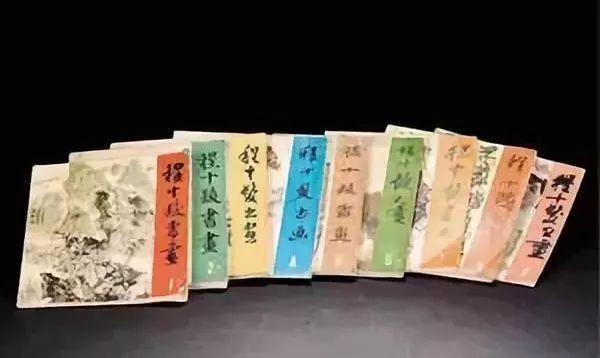 程十髮書畫
1
程十髮書畫
2
程十髮書畫
程十髮書畫
4
程十髮書畫
程十髮書畫
程十髮書畫
程十髮
程十髮書畫